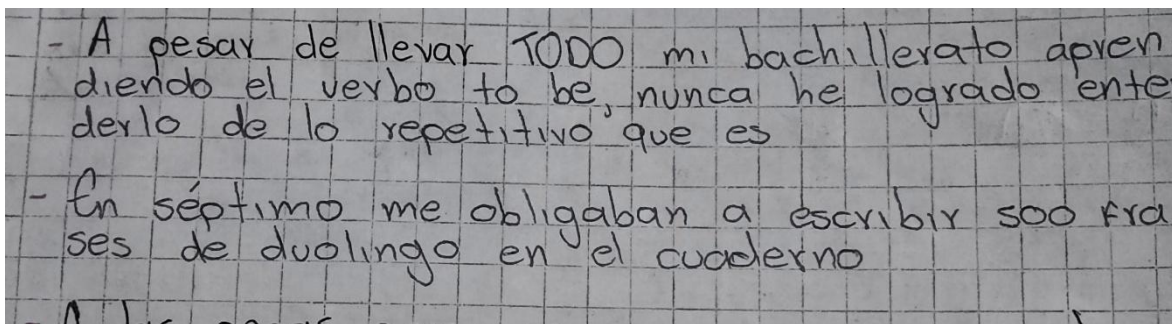 - A pesar de llevar TODO mi bachillerato apren
diendo el verbo to be, nunca he logrado ente
derlo de lo repetitivo que es
- En séptimo me obligaban a escribir 500 fra
ses de duolingo en el cuaderno